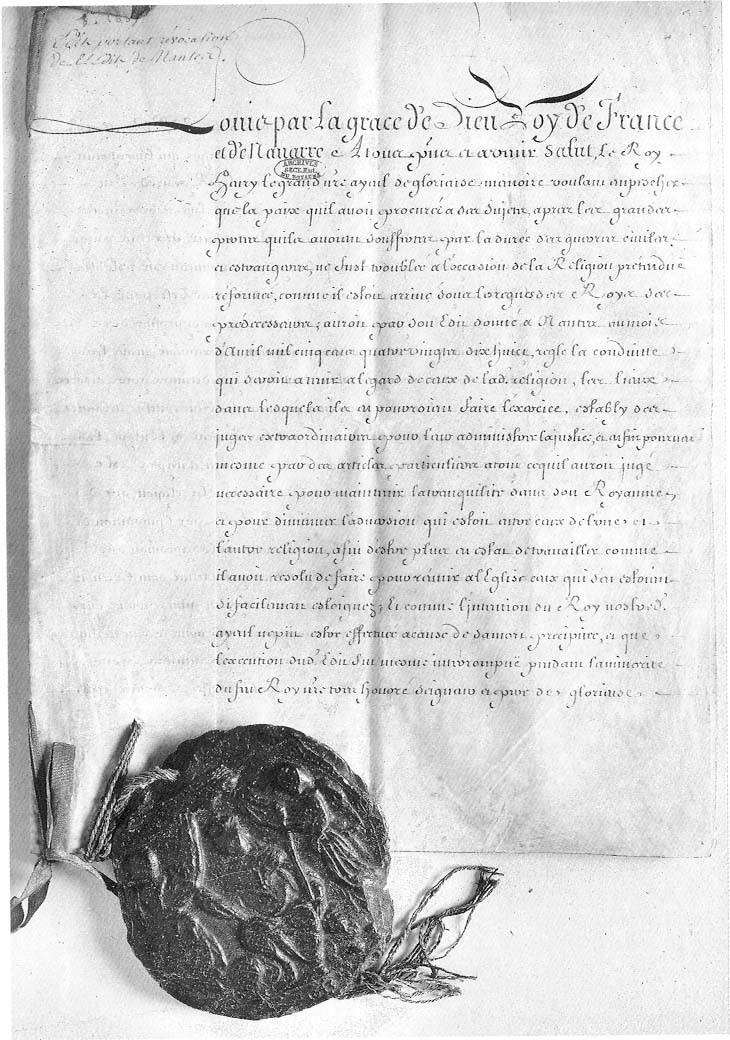 Edit portant revocation
de l'Edit de Nantes.
Louis par la grace de Dieu Roy de France
et de Navarre A tous presens et a venir salut, Le Roy
ARCHIVES
SECT. HIST.
DU ROYAUME
Henry le grand nre ayeul de glorieuse memoire voulant empescher
que la paix quil avoit procurée a ses sujets, apres les grandes
pertes quils avoient souffertes par la durée des guerres civiles
et estrangeres, ne fust troublée a l'occasion de la Religion prétendue
réformée, comme il estoit arrivé sous les regnes des Roys ses
prédecesseurs; auroit par son Edit donné a Nantes au mois
d'Avril mil cinq cens quatrevingts dix huict, reglé la conduitte
qui seroit a tenir a legard de ceux de lad. religion, les lieux
dans lesquels ils en pourroient faire l'exercice, estably des
juges extraordinaires pour leur administrer la justice, et enfin pourveu
mesme par des articles particuliers a tout ce quil auroit jugé
necessaire pour maintenir la tranquilité dans son Royaume,
et pour diminuer l'adversion qui estoit entre ceux de l'une et
l'autre religion, afin d'estre plus en estat de travailler comme
il avoit resolu de faire pour réunir a l'Eglise ceux qui s'en estoient
si facilement esloignez; Et comme l'intention du Roy nostred.
ayeul ne put estre effectuée a cause de sa mort précipitée, et que
l'execution dud. Edit fut mesme interrompüe pendant la minorité
du feu Roy nre tres honoré seigneur et pere de glorieuse